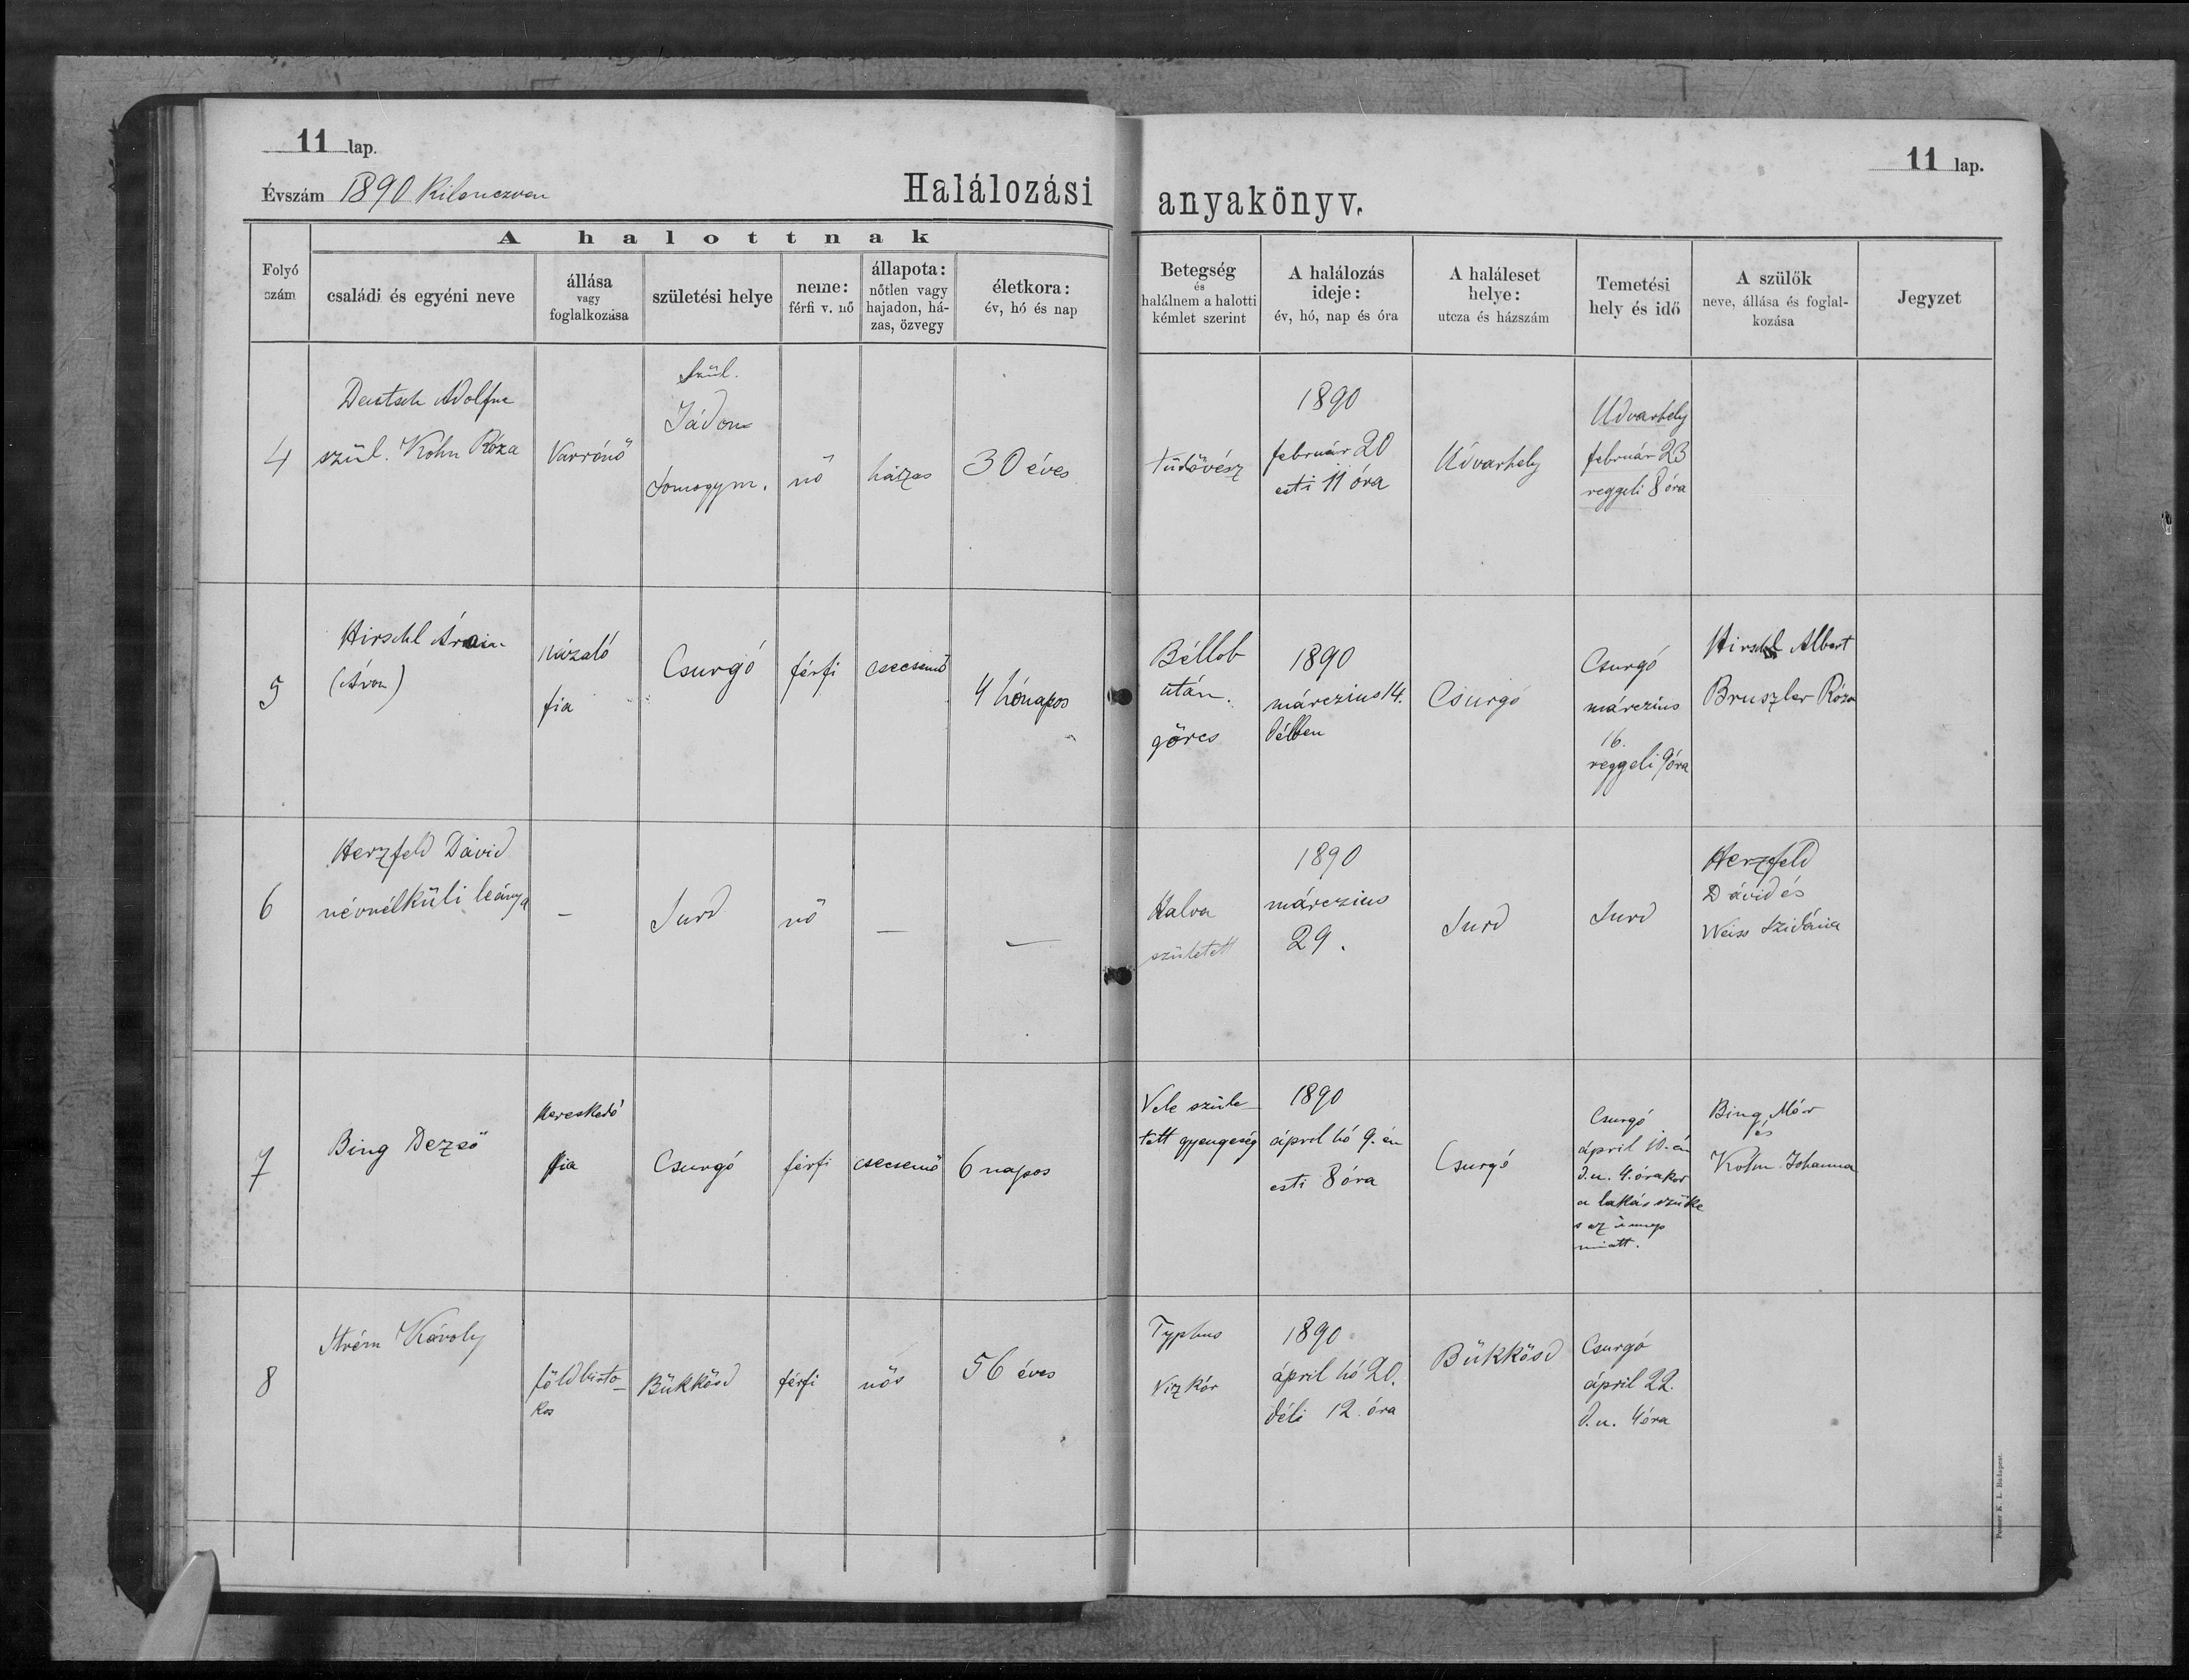 11 lap.
11 lap.
Évszám 1890 Kilenczven
Halálozási anyakönyv.
A halottnak
Folyó szám
családi és egyéni neve
állása vagy foglalkozása
születési helye
neme: férfi v. nő
állapota: nőtlen vagy hajadon, házas, özvegy
életkora: év, hó és nap
Betegség és halálnem a halotti kémlet szerint
A halálozás ideje: év, hó, nap és óra
A haláleset helye: utcza és házszám
Temetési hely és idő
A szülők neve, állása és foglalkozása
Jegyzet
4
Deutsch Adolfne
szül. Kohn Róza
Varrónő
Szül.
Jádon
Somogym.
nő
házas
30 éves
tüdővész
1890
február 20
esti 11 óra
Udvarhely
Udvarhely
február 23
reggeli 8 óra
5
Hirschl Ármin
(Áron)
házaló
fia
Csurgó
férfi
csecsemő
4 hónapos
Béllob
után.
görcs
1890
márczius 14.
délben
Csurgó
Csurgó
márczius
16.
reggeli 9 óra
Hirschl Albert
Bruszler Róza
6
Herzfeld Dávid
névnélküli leánya
—
Surd
nő
—
—
Halva
született
1890
márczius
29.
Surd
Surd
Herzfeld
Dávid és
Weiss Szidónia
7
Bing Dezső
kereskedő
fia
Csurgó
férfi
csecsemő
6 napos
Vele szüle-
tett gyengeség
1890
ápril hó 9.-én
esti 8 óra
Csurgó
Csurgó
ápril 10.-én
d.u. 4. órakor
a lakás szűke
s az ünnep
miatt.
Bing Mór
és
Kohn Johanna
8
Strém Károly
földbirto-
kos
Bükkösd
férfi
nős
56 éves
Typhus
Vizkór
1890
ápril hó 20.
déli 12. óra
Bükkösd
Csurgó
ápril 22.
d.u. 4 óra
Posner K. L. Budapest.